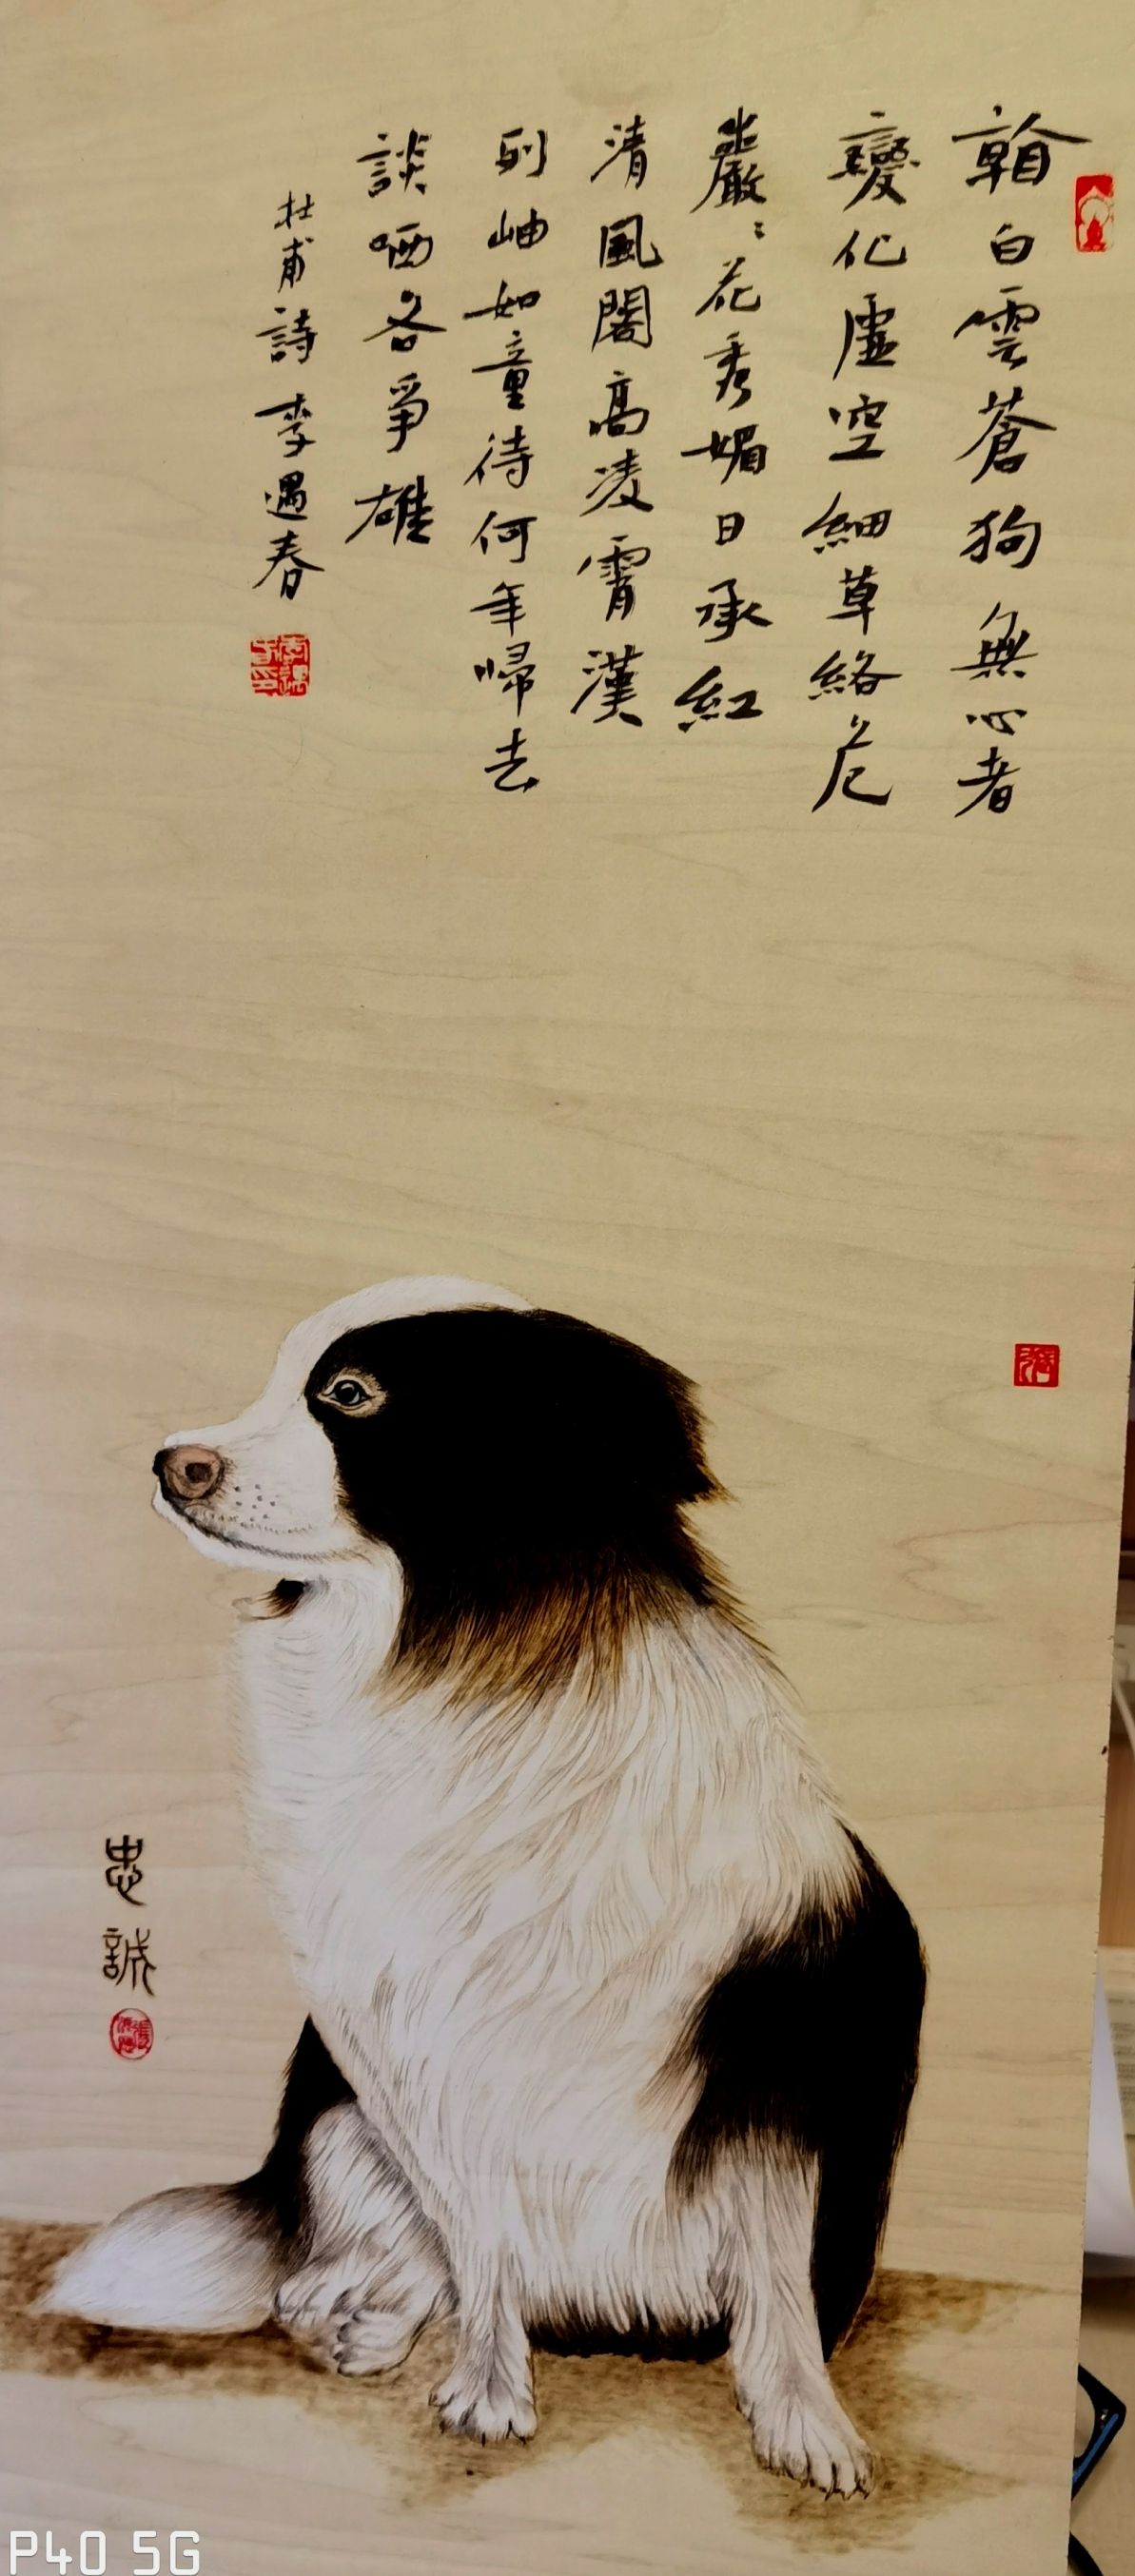 白雲蒼狗無心者
變化虛空細草絡危
巖〻花秀媚日承紅
清風闊高凌霄漢
列岫如童待何年帰去
談哂各爭雄
杜甫詩 李遇春
忠誠
P40 5G